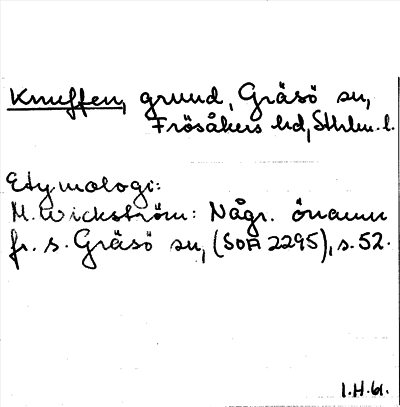 Knuffen, grund, Gräsö sn,
Frösåkers hd, Sthlm. l.
Etymologi:
M. Wickström: Någr. önamn
fr. s. Gräsö sn, (SOA 2295), s. 52.
I.H. 61.